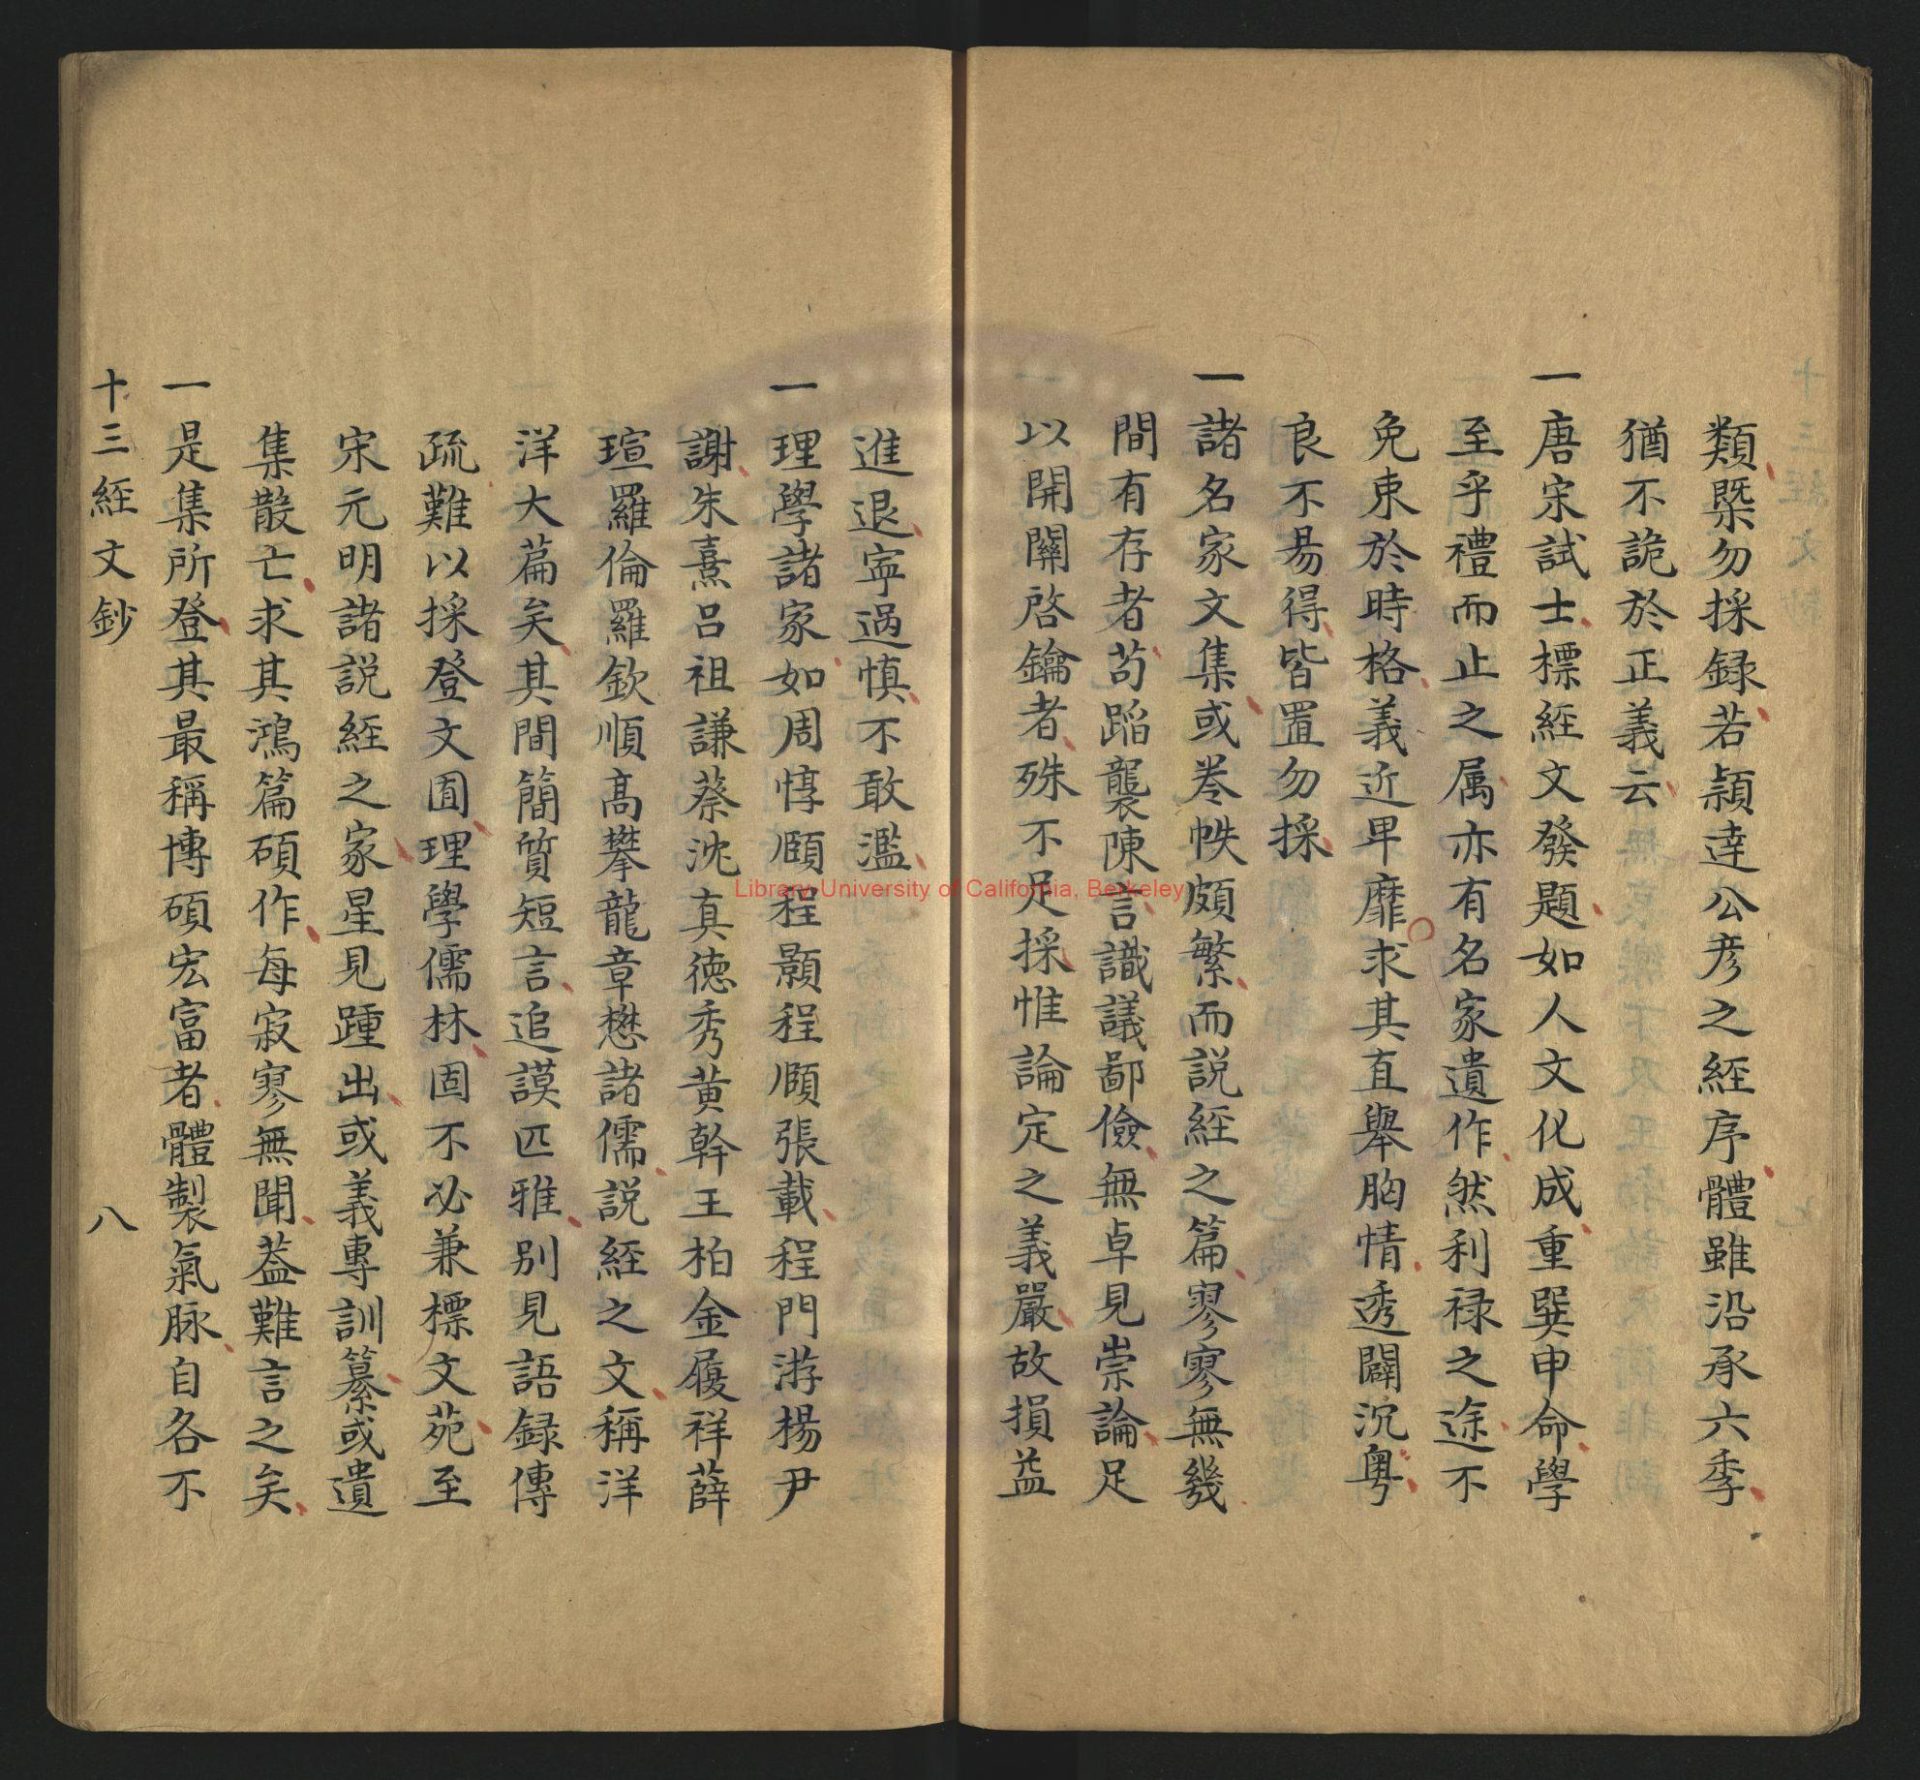 類槩勿採録若穎逹公彦之經序體雖沿承六季
猶不詭於正義云
一唐宋試士標經文發題如人文化成重巽申命學
至乎禮而止之属亦有名家遺作然利禄之途不
免束於時格義近早靡求其直舉胸情透闢沉粤
良不昜得皆置勿採
一諸名家文集或卷帙頗繁而説經之篇寥寥無幾
間有存者苟蹈襲陳言識議鄙儉無卓見崇論足
以開關啓鑰者殊不足採惟論定之義嚴故損益
進退寧過慎不敢濫
一理學諸家如周惇頤程顥程頤張載程門游楊尹
謝朱熹呂祖謙蔡沈真德秀黄幹王柏金履祥薛
瑄羅倫羅欽順髙攀龍章懋諸儒説經之文稱洋
洋大篇矣其間簡質短言追謨匹雅别見語録傳
疏難以採登文囿理學儒林固不必兼標文苑至
宋元明諸説經之家星見踵出或義專訓纂或遺
集散亡求其鴻篇碩作每寂寥無聞葢難言之矣
一是集所登其最稱博碩宏富者體製氣脉自各不
十三經文鈔 八
Library University of California, Berkeley